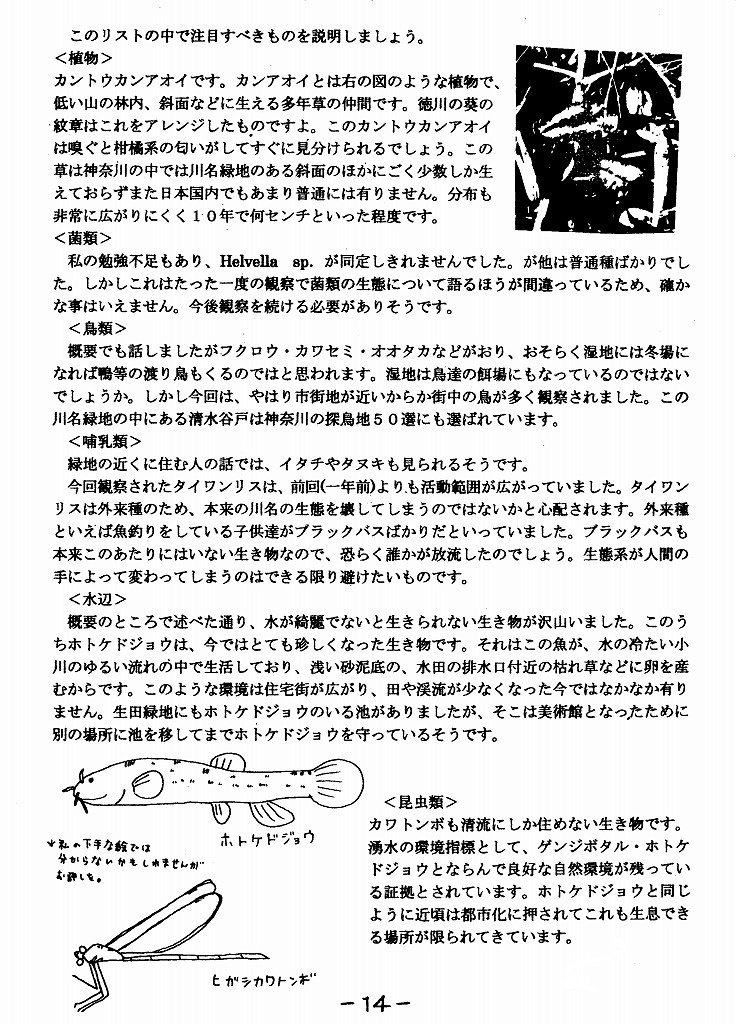 このリストの中で注目すべきものを説明しましょう。
＜植物＞
カントウカンアオイです。カンアオイとは右の図のような植物で、
低い山の林内、斜面などに生える多年草の仲間です。徳川の葵の
紋章はこれをアレンジしたものですよ。このカントウカンアオイ
は嗅ぐと柑橘系の匂いがしてすぐに見分けられるでしょう。この
草は神奈川の中では川名緑地のある斜面のほかにごく少数しか生
えておらずまた日本国内でもあまり普通には有りません。分布も
非常に広がりにくく１０年で何センチといった程度です。
＜菌類＞
私の勉強不足もあり、Helvella sp. が同定しきれませんでした。が他は普通種ばかりでし
た。しかしこれはたった一度の観察で菌類の生態について語るほうが間違っているため、確か
な事はいえません。今後観察を続ける必要がありそうです。
＜鳥類＞
概要でも話しましたがフクロウ・カワセミ・オオタカなどがおり、おそらく湿地には冬場に
なれば鴨等の渡り鳥もくるのではと思われます。湿地は鳥達の餌場にもなっているのではない
でしょうか。しかし今回は、やはり市街地が近いからか街中の鳥が多く観察されました。この
川名緑地の中にある清水谷戸は神奈川の探鳥地５０選にも選ばれています。
＜哺乳類＞
緑地の近くに住む人の話では、イタチやタヌキも見られるそうです。
今回観察されたタイワンリスは、前回(一年前)よりも活動範囲が広がっていました。タイワン
リスは外来種のため、本来の川名の生態を壊してしまうのではないかと心配されます。外来種
といえば魚釣りをしている子供達がブラックバスばかりだといっていました。ブラックバスも
本来このあたりにはいない生き物なので、恐らく誰かが放流したのでしょう。生態系が人間の
手によって変わってしまうのはできる限り避けたいものです。
＜水辺＞
概要のところで述べた通り、水が綺麗でないと生きられない生き物が沢山いました。このう
ちホトケドジョウは、今ではとても珍しくなった生き物です。それはこの魚が、水の冷たい小
川のゆるい流れの中で生活しており、浅い砂泥底の、水田の排水口付近の枯れ草などに卵を産
むからです。このような環境は住宅街が広がり、田や渓流が少なくなった今ではなかなか有り
ません。生田緑地にもホトケドジョウのいる池がありましたが、そこは美術館となったために
別の場所に池を移してまでホトケドジョウを守っているそうです。
ホトケドジョウ
＊私の下手な絵では
分からないかもしれませんが
お許しを。
＜昆虫類＞
カワトンボも清流にしか住めない生き物です。
湧水の環境指標として、ゲンジボタル・ホトケ
ドジョウとならんで良好な自然環境が残ってい
る証拠とされています。ホトケドジョウと同じ
ように近頃は都市化に押されてこれも生息でき
る場所が限られてきています。
ヒガシカワトンボ
－14－